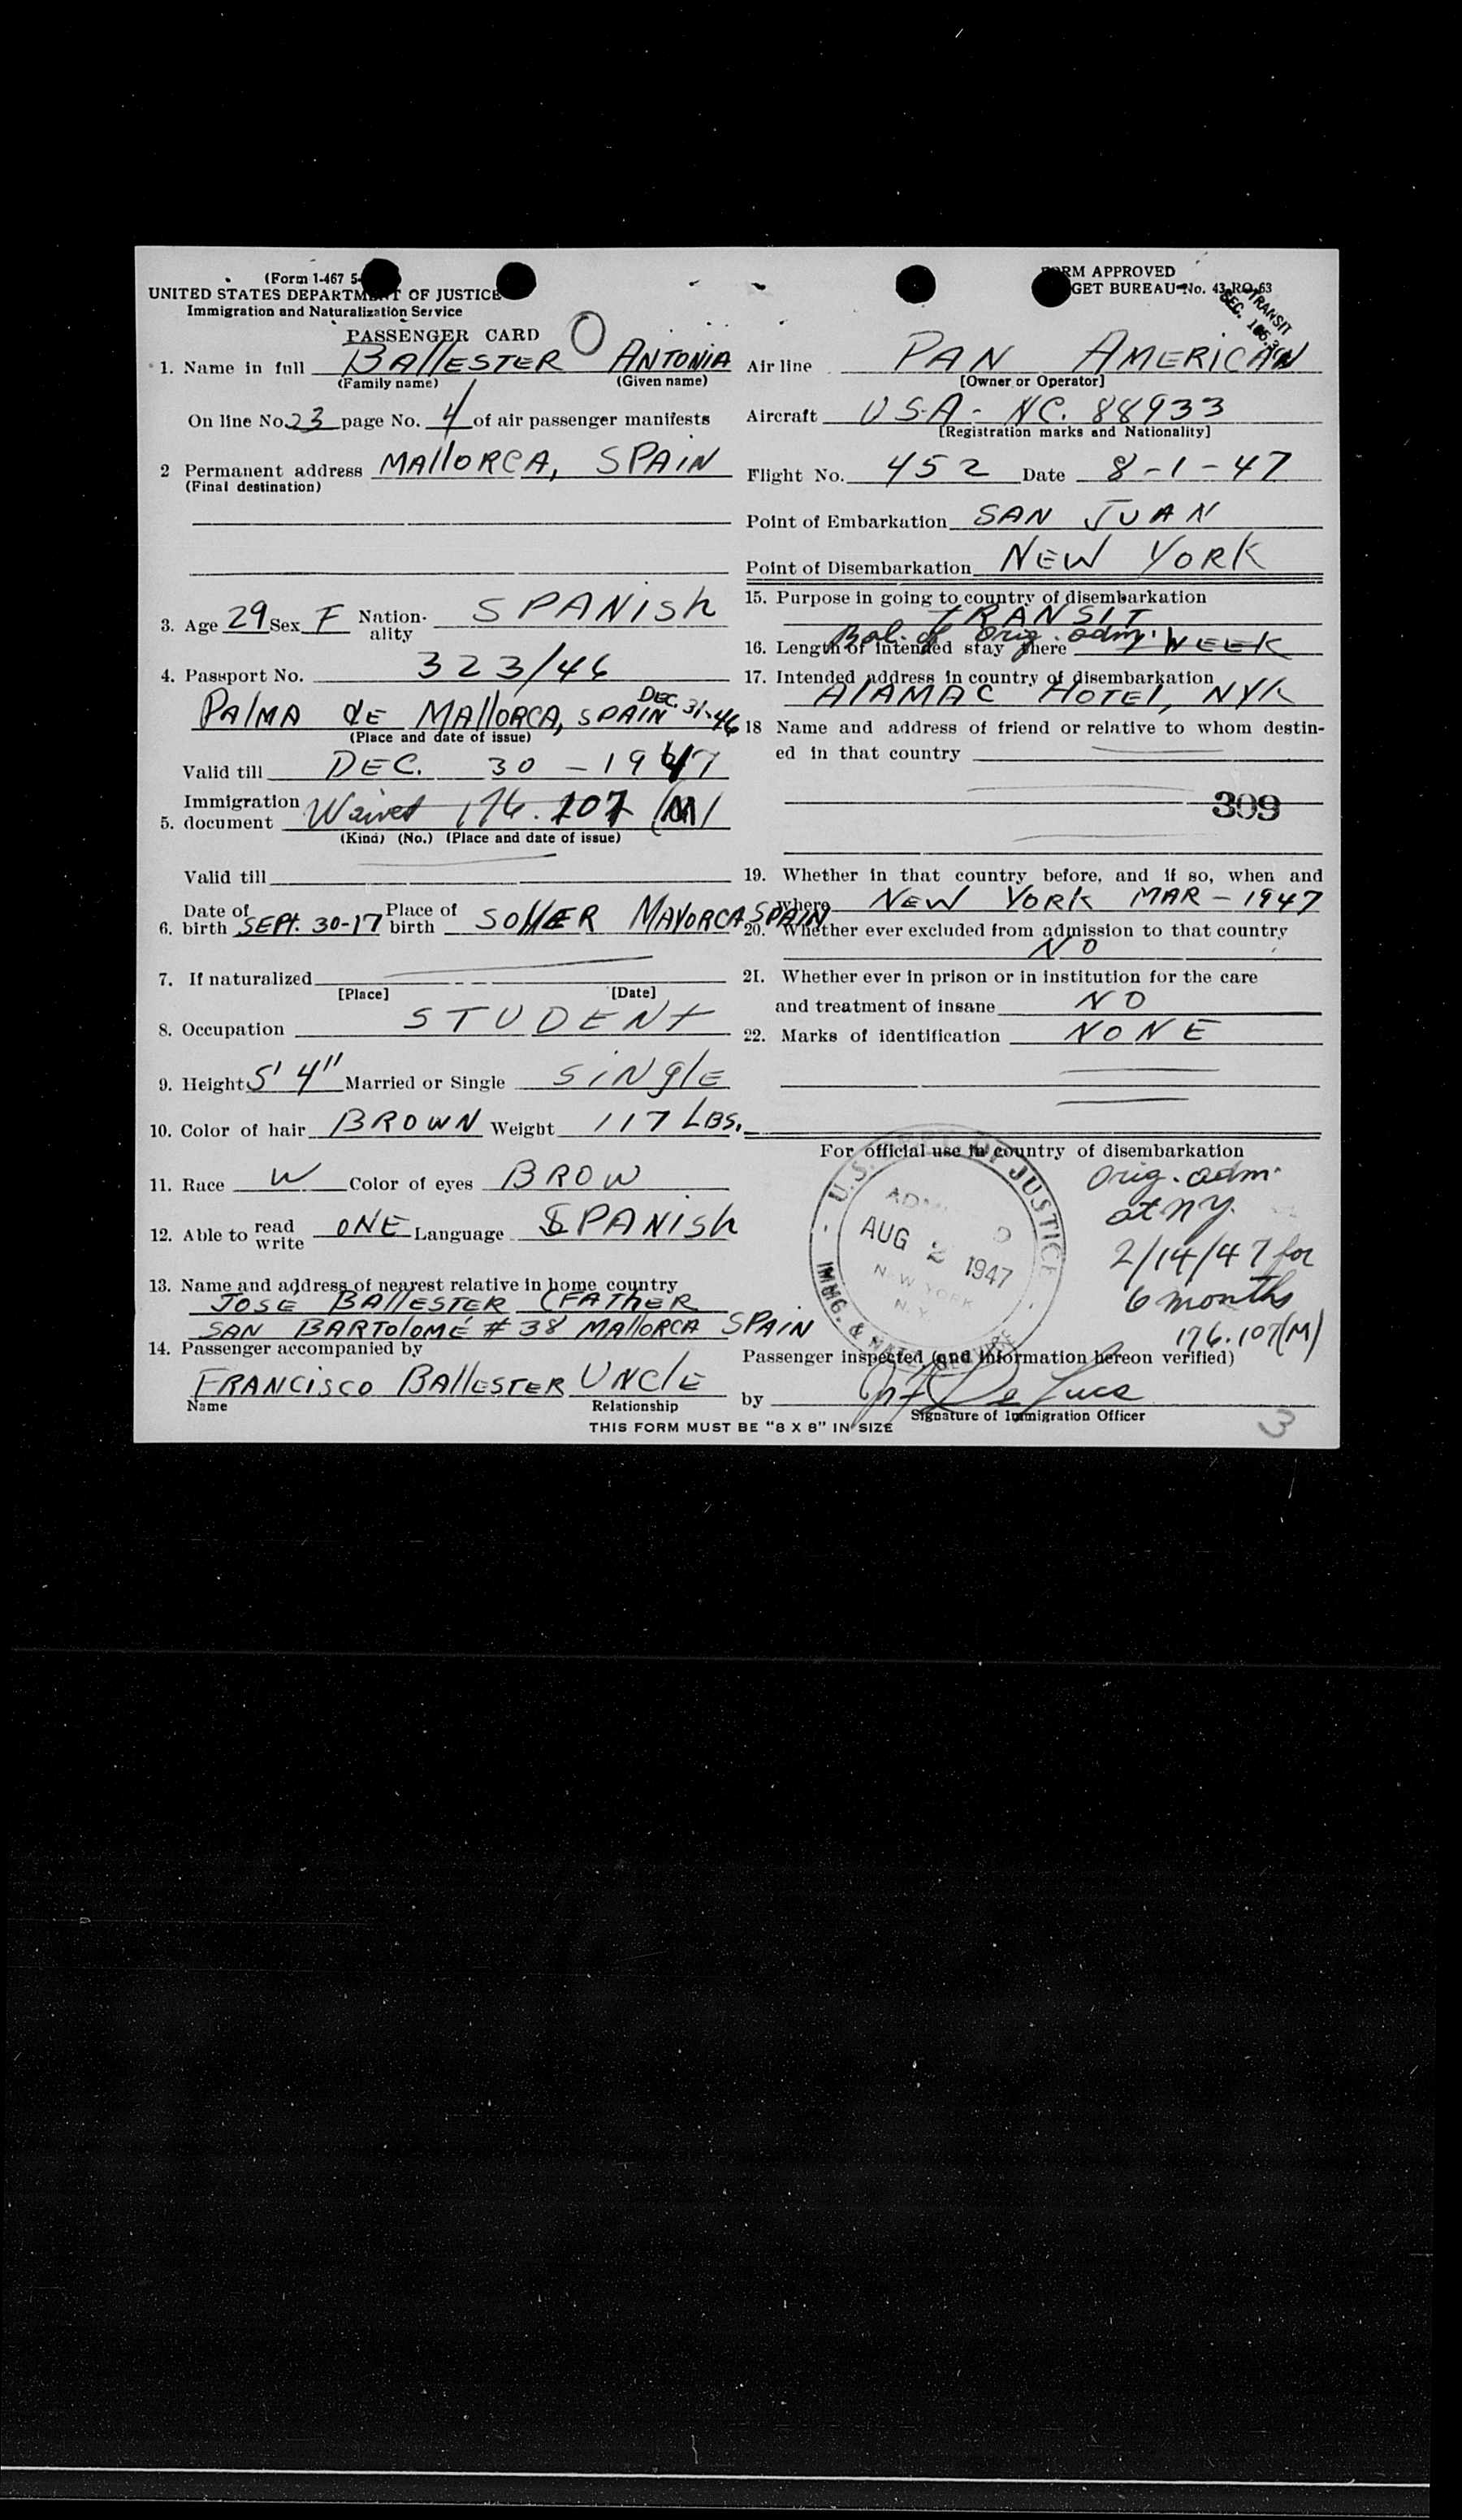 (Form I-467 5-
UNITED STATES DEPARTMENT OF JUSTICE
Immigration and Naturalization Service
PASSENGER CARD
FORM APPROVED
BUDGET BUREAU No. 43-RO-63
TRANSIT
1. Name in full BALLESTER ANTONIA
(Family name) (Given name)
On line No. 23 page No. 4 of air passenger manifests
2 Permanent address MALLORCA, SPAIN
(Final destination)
3. Age 29 Sex F Nationality SPANISH
4. Passport No. 323/46
PALMA de MALLORCA, SPAIN DEC. 31-46
(Place and date of issue)
Valid till DEC. 30 - 1947
Immigration
5. document Waived 176.107 (M)
(Kind) (No.) (Place and date of issue)
Valid till
6. Date of birth SEPT. 30-17 Place of birth SOLLER MAYORCA SPAIN
7. If naturalized
[Place] [Date]
8. Occupation STUDENT
9. Height 5' 4" Married or Single SINGLE
10. Color of hair BROWN Weight 117 LBS.
11. Race W Color of eyes BROW
12. Able to read write ONE Language SPANISH
13. Name and address of nearest relative in home country
JOSÉ BALLESTER (FATHER
SAN BARTOLOMÉ # 38 MALLORCA SPAIN
14. Passenger accompanied by
FRANCISCO BALLESTER UNCLE
Name Relationship
Air line PAN AMERICAN
[Owner or Operator]
Aircraft USA - NC. 88933
[Registration marks and Nationality]
Flight No. 452 Date 8-1-47
Point of Embarkation SAN JUAN
Point of Disembarkation NEW YORK
15. Purpose in going to country of disembarkation
TRANSIT
Bal. of orig. adm.
16. Length of intended stay there WEEK
17. Intended address in country of disembarkation
ALAMAC HOTEL, NYK
18 Name and address of friend or relative to whom destin-
ed in that country
309
19. Whether in that country before, and if so, when and
where NEW YORK MAR - 1947
20. Whether ever excluded from admission to that country
NO
21. Whether ever in prison or in institution for the care
and treatment of insane NO
22. Marks of identification NONE
For official use in country of disembarkation
U.S. DEPT. OF JUSTICE
ADMITTED
AUG 2 1947
NEW YORK
N.Y.
IMMG. & NATZ. SERVICE
Orig. adm.
at NY.
2/14/47 for
6 months
176.107(M)
Passenger inspected (and information hereon verified)
by De Luca
Signature of Immigration Officer
THIS FORM MUST BE "8 X 8" IN SIZE
3